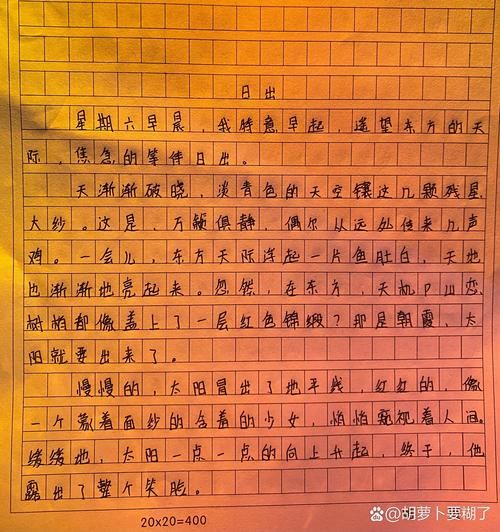 日出
星期六早晨，我特意早起，遥望东方的天
际，焦急的等待日出。
天渐渐破晓，淡青色的天空镶这几颗残星
大纱。这是，万籁俱静，偶尔从远处传来几声
鸡。一会儿，东方天际浮起一片鱼肚白，天地
也渐渐地亮起来。忽然，在东方，天机户山恋
树梢都像盖上了一层红色锦缎？那是朝霞，太
阳就要出来了。
慢慢的，太阳冒出了地平线，红红的，像
一个蒙着面纱的含羞的少女，悄悄窥视着人间。
缓缓地，太阳一点一点的向上升起，终于，他
露出了整个笑脸。
20x20=400
@胡萝卜要糊了